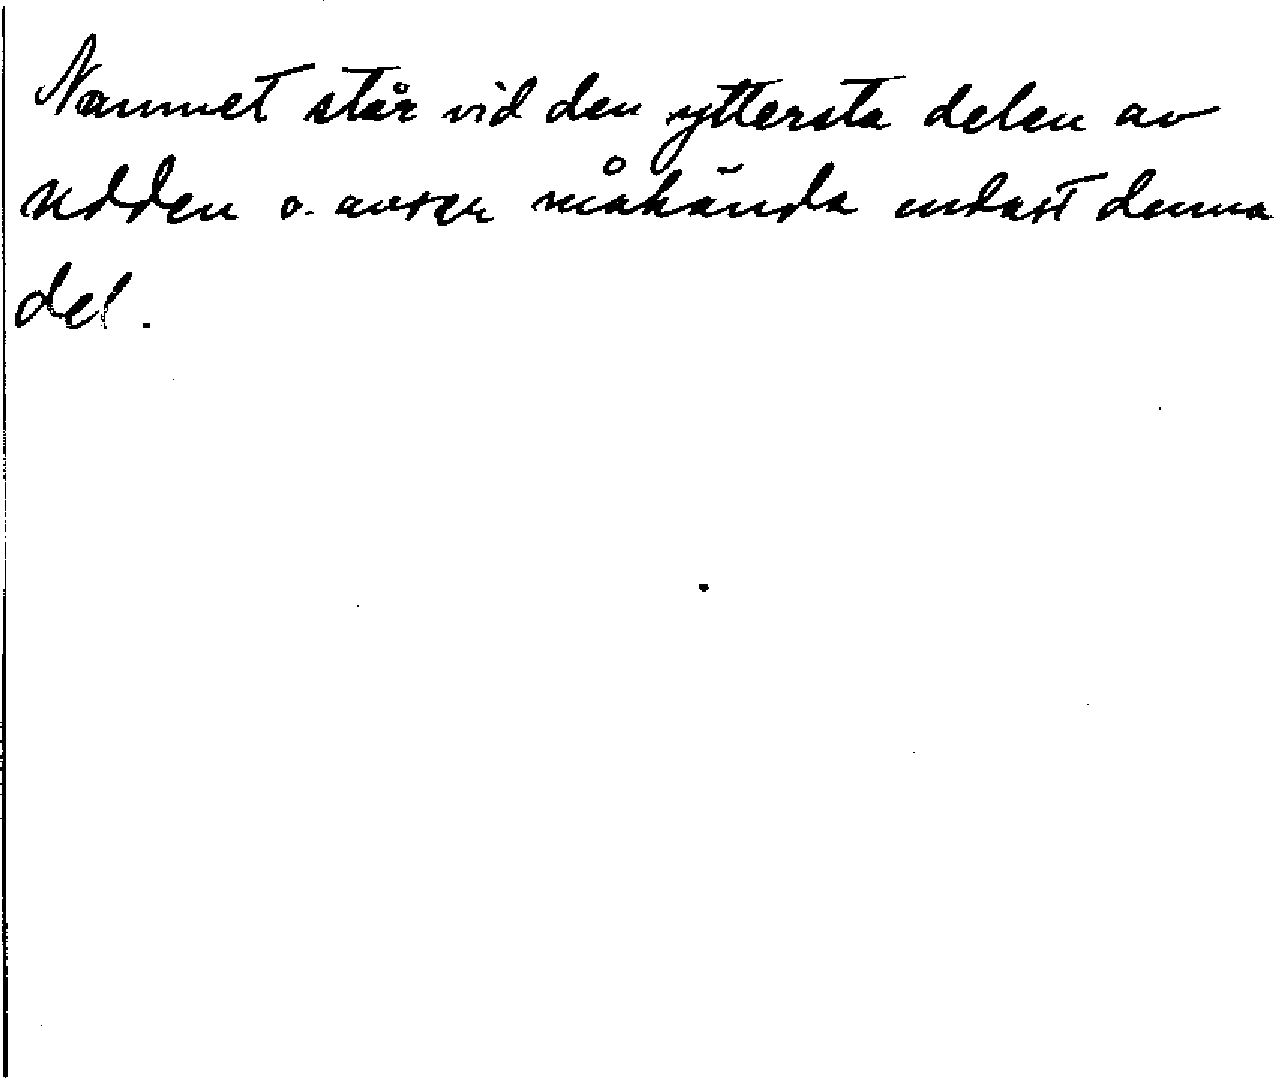 Namnet står vid den yttersta delen av
udden o. avser måhända endast denna
del.